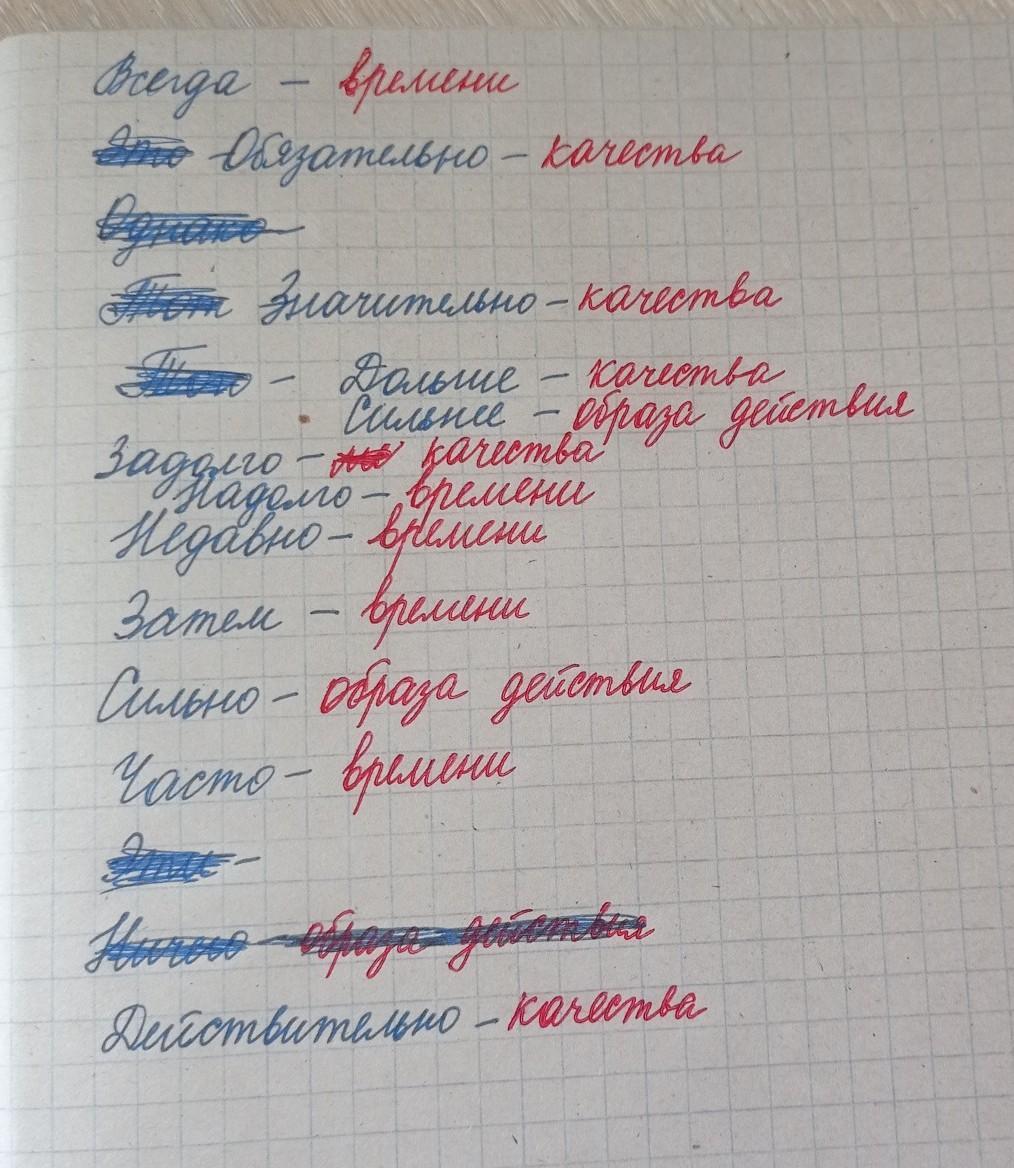 Всегда - времени
Это Обязательно - качества
Однако
Тот Значительно - качества
- Дольше - качества
Сильнее - образа действия
Задолго - не качества
Надолго - времени
Недавно - времени
Затем - времени
Сильно - образа действия
Часто - времени
Эти -
Ничего - образа действия
Действительно - качества